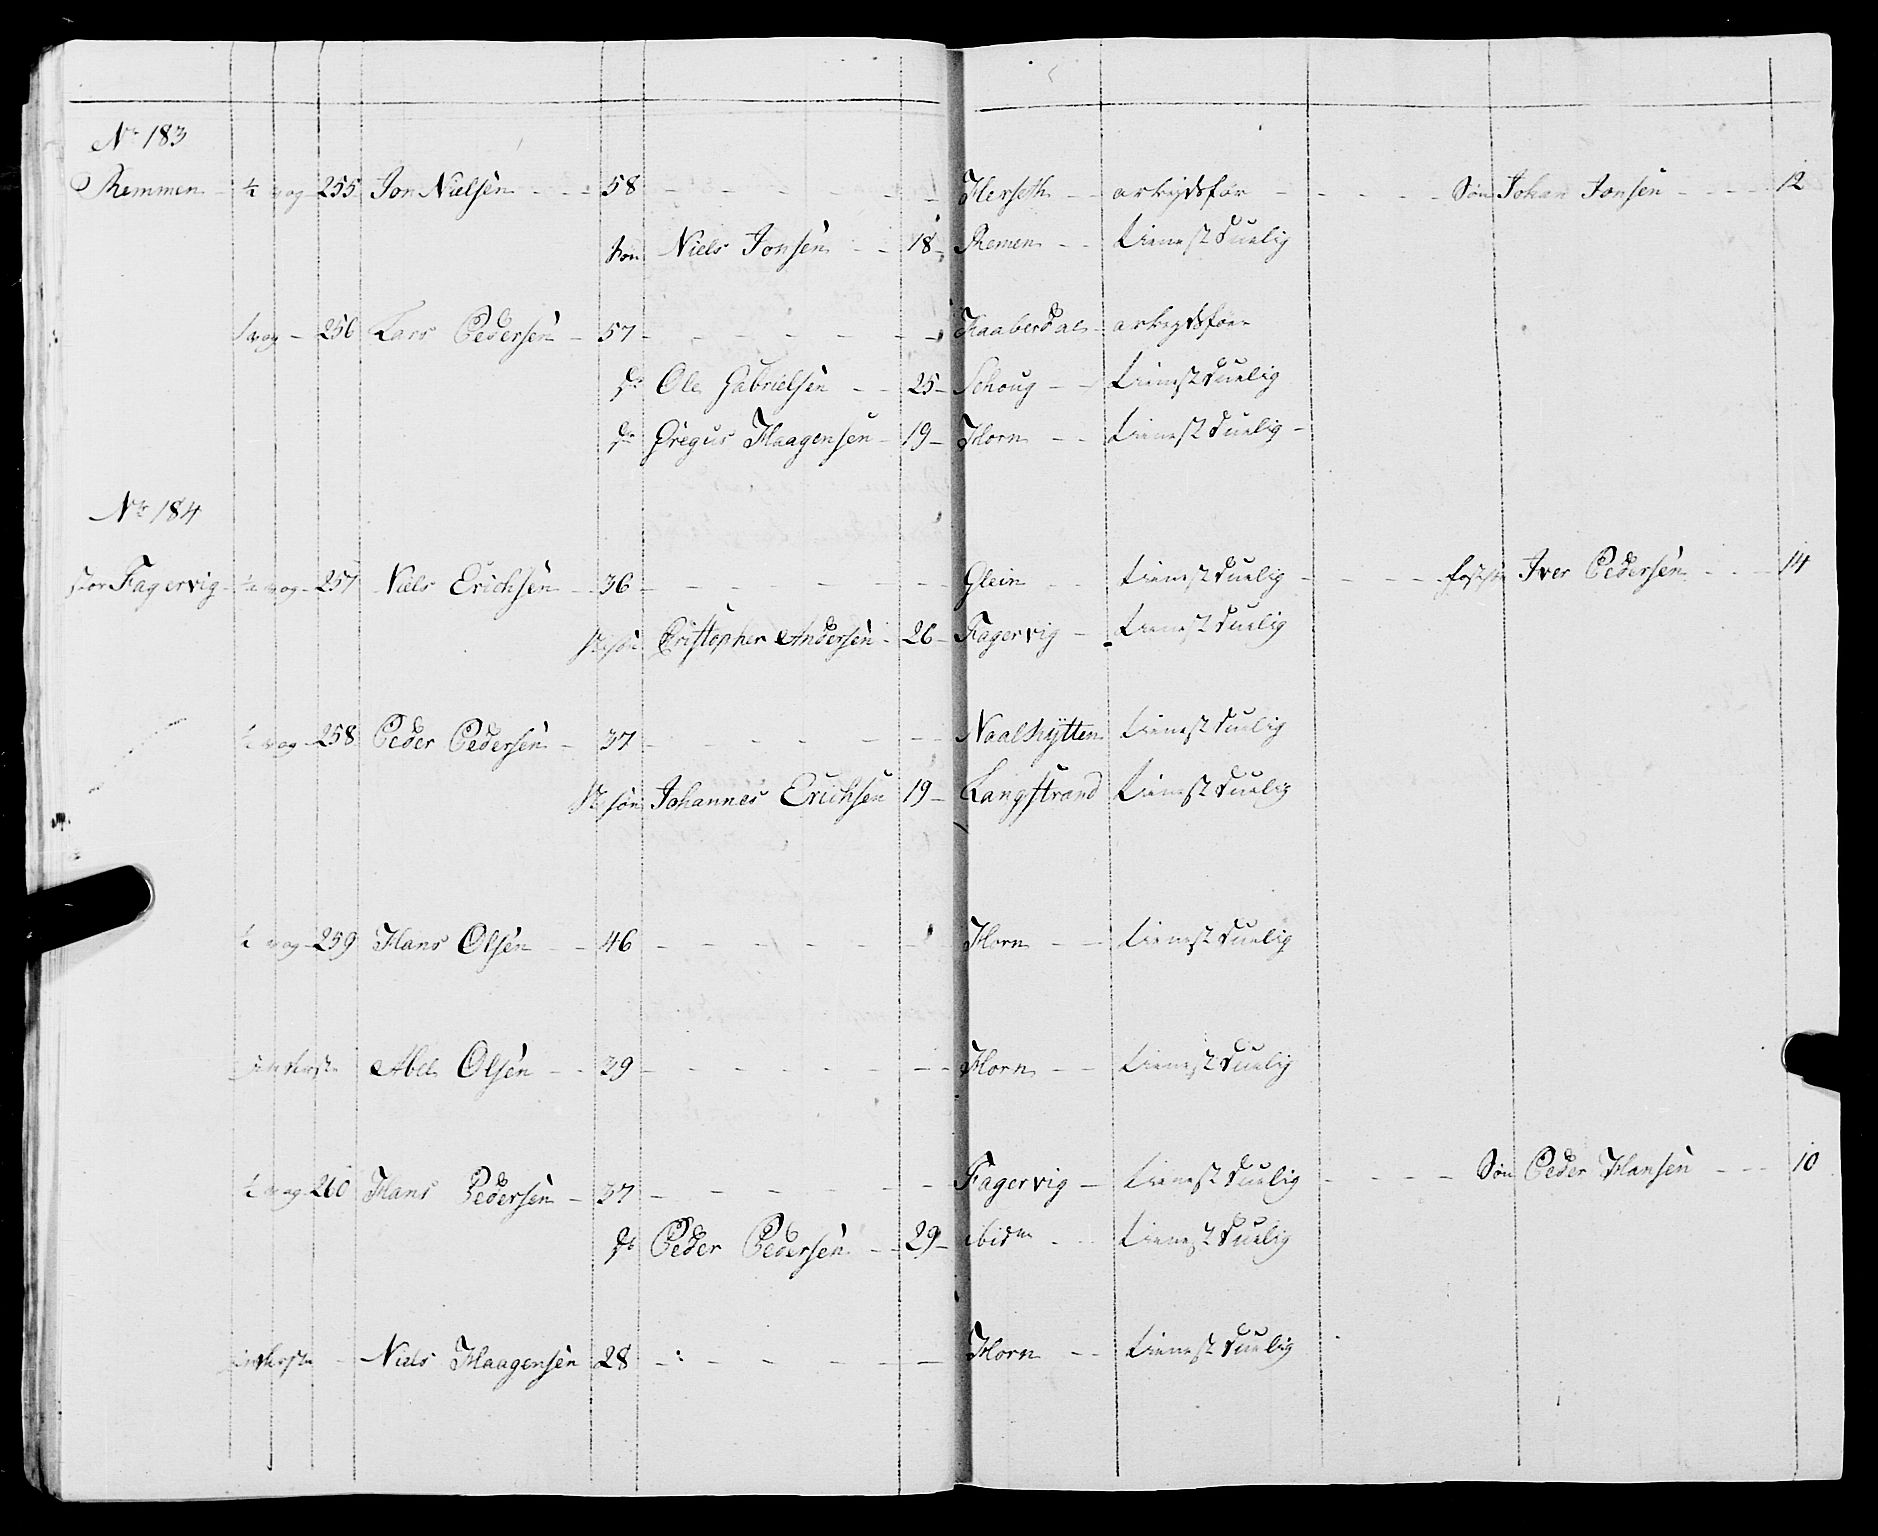 No 183
Remmen ½ vog 255 Jon Nielsen 58 Herseth arbejdsfør Søn Johan Jonsen 12
Søn Niels Jonsen 18 Remen tienestduelig
1 vog 256 Lars Pedersen 57 Haabersdal arbejdsføer
Dr Ole Gabrielsen 25 Schoug tienestduelig
Dr Gregus Haagensen 19 Horn tienestduelig
No 184
stor Fagervig ½ vog 257 Niels Erichsen 36 Glein tienestduelig Iver Pedersen 14
St søn Cristopher Andersen 26 Fagervig tienestduelig
½ vog 258 Peder Pedersen 37 Naalhytten tienestduelig
St søn Johannes Erichsen 19 Langstrand tienestduelig
½ vog 259 Hans Olsen 46 Horn tienestduelig
inderste Abel Olsen 39 Horn tienestduelig
½ vog 260 Hans Pedersen 37 Fagervig tienestduelig Søn Peder Hansen 10
Dr Peder Pedersen 29 ibidm tienestduelig
inderste Niels Haagensen 28 Horn tienestduelig